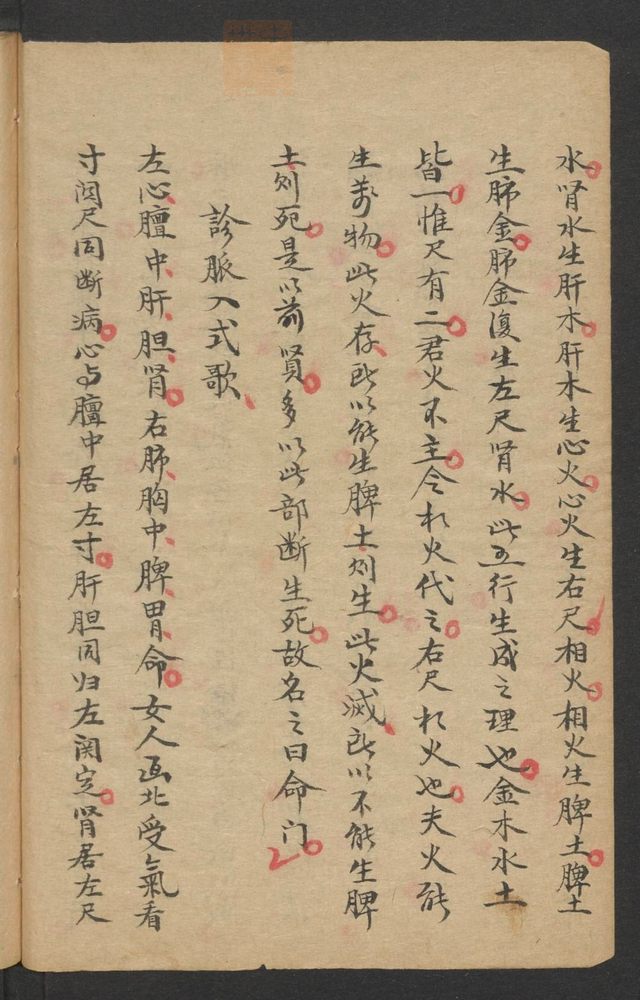 水肾水生肝木肝木生心火心火生右尺相火相火生脾土脾土
生肺金肺金復生左尺肾水此五行生成之理也金木水土
皆一惟尺有二君火不主令相火代之右尺相火也夫火能
生萬物此火存所以能生脾土则生此火滅所以不能生脾
土则死是以前贤多以此部断生死故名之曰命门
診脈入式歌
左心膻中肝胆肾右肺胸中脾胃命女人面北受氣看
寸関尺同断病心与膻中居左寸肝胆同归左関定肾居左尺